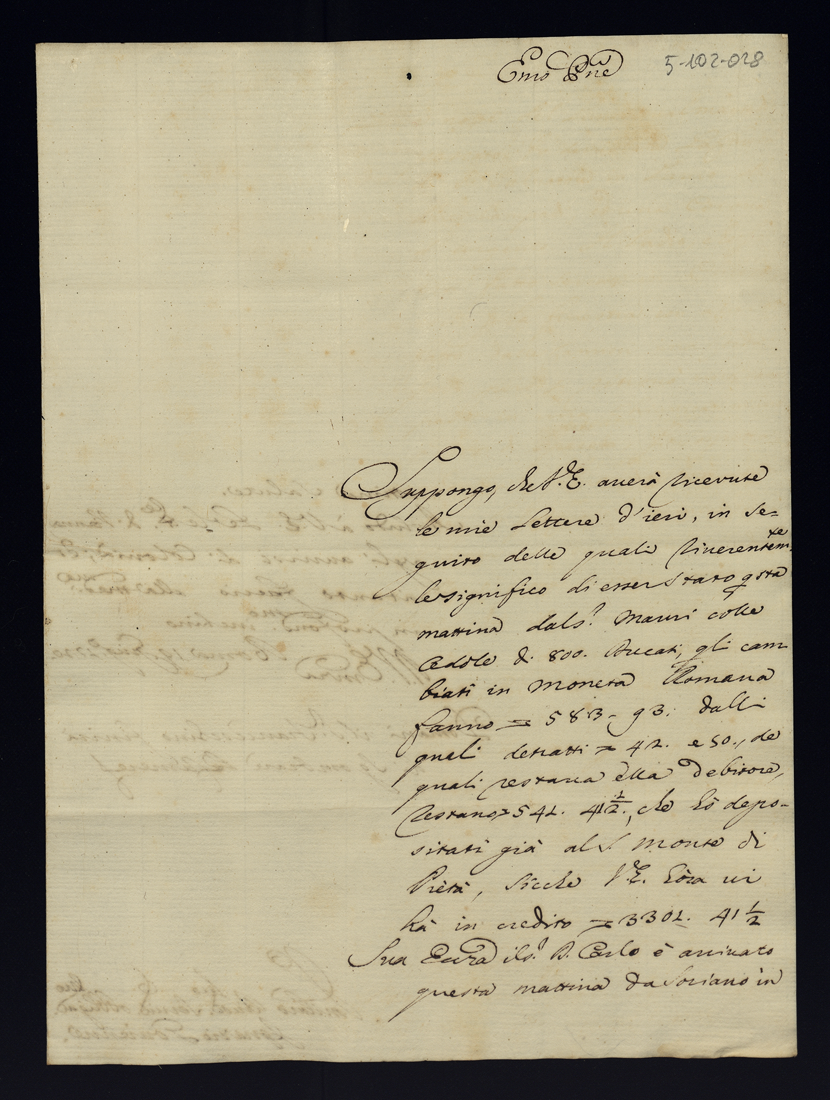 Emo Pne
5-102-028
Suppongo, che V.E. averà ricevute
le mie lettere d'ieri, in se-
guito delle quali riverentemte
le significo di essere stato qsta
mattina dal Sr. Mauri colle
Cedole di 800. Ducati, gli cam-
biati in moneta Romana
fanno = 583-93: dalli
quali detratti = 42. e 50., de
quali restava ella debitore,
restano = 541. 41½., che hò depo-
sitati già al S. Monte di
Pietà, sicche V.E. hora vi
hà in credito = 3301. 41½
Sua Ecza il Sr. D. Carlo è arrivato
questa mattina da Soriano in